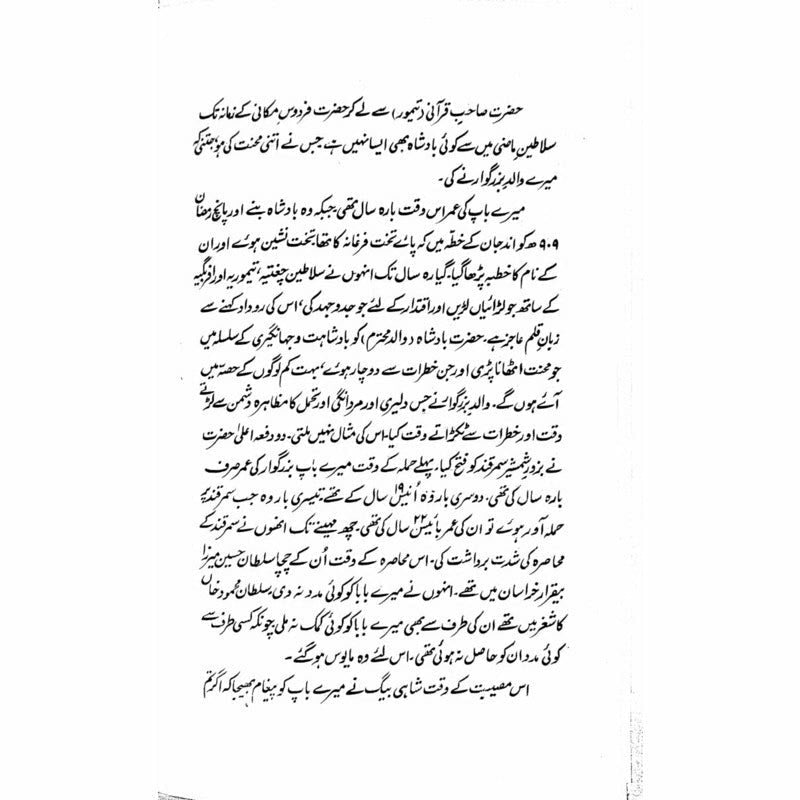 حضرت صاحب قرآنی (تیمور) سے لے کر حضرت فردوس مکانی کے زمانہ تک
سلاطین ماضی میں سے کوئی بادشاہ بھی ایسا نہیں ہے جس نے اتنی محنت کی ہو، جتنی کہ
میرے والد بزرگوار نے کی۔
میرے باپ کی عمر اس وقت بارہ سال تھی جبکہ وہ بادشاہ بنے اور پانچ رمضان
۹۰۹ھ کو اندجان کے خطہ میں کہ پائے تخت فرغانہ کا تھا، تخت نشین ہوئے اور ان
کے نام کا خطبہ پڑھا گیا۔ گیارہ سال تک انہوں نے سلاطین چغتیہ، تیموریہ اور ازبگیہ
کے ساتھ جو لڑائیاں لڑیں اور اقتدار کے لئے جو جدوجہد کی، اس کی روداد کہنے سے
زبان قلم عاجز ہے۔ حضرت بادشاہ (والد محترم) کو بادشاہت و جہانگیری کے سلسلہ میں
جو محنت اٹھانا پڑی اور جن خطرات سے دوچار ہوئے، بہت کم لوگوں کے حصہ میں
آئے ہوں گے۔ والد بزرگوار نے جس دلیری اور مردانگی اور تحمل کا مظاہرہ دشمن سے لڑتے
وقت اور خطرات سے ٹکراتے وقت کیا۔ اس کی مثال نہیں ملتی۔ دو دفعہ اعلیٰ حضرت
نے بزور شمشیر سمرقند کو فتح کیا۔ پہلے حملہ کے وقت میرے باپ بزرگوار کی عمر صرف
بارہ سال کی تھی۔ دوسری بار وہ اُنیس ۱۹ سال کے تھے۔ تیسری بار وہ جب سمرقند پر
حملہ آور ہوئے تو ان کی عمر بائیس ۲۲ سال کی تھی۔ چھ مہینے تک انھوں نے سمرقند کے
محاصرہ کی شدت برداشت کی۔ اس محاصرہ کے وقت اُن کے چچا سلطان حسین میرزا
بیقرار خراسان میں تھے۔ انہوں نے میرے بابا کو کوئی مدد نہ دی۔ سلطان محمود خاں
کاشغر میں تھے ان کی طرف سے بھی میرے بابا کو کوئی کمک نہ ملی۔ چونکہ کسی طرف سے
کوئی مدد ان کو حاصل نہ ہوئی تھی۔ اس لئے وہ مایوس ہو گئے۔
اس مصیبت کے وقت شاہی بیگ نے میرے باپ کو پیغام بھیجا کہ اگر تم